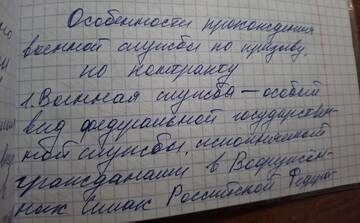 Особенности прохождения
военной службы по призыву,
по контракту
1. Военная служба – особый
вид федеральной государствен-
ной службы, исполняемой
гражданами в Вооружён-
ных Силах Российской Федера-